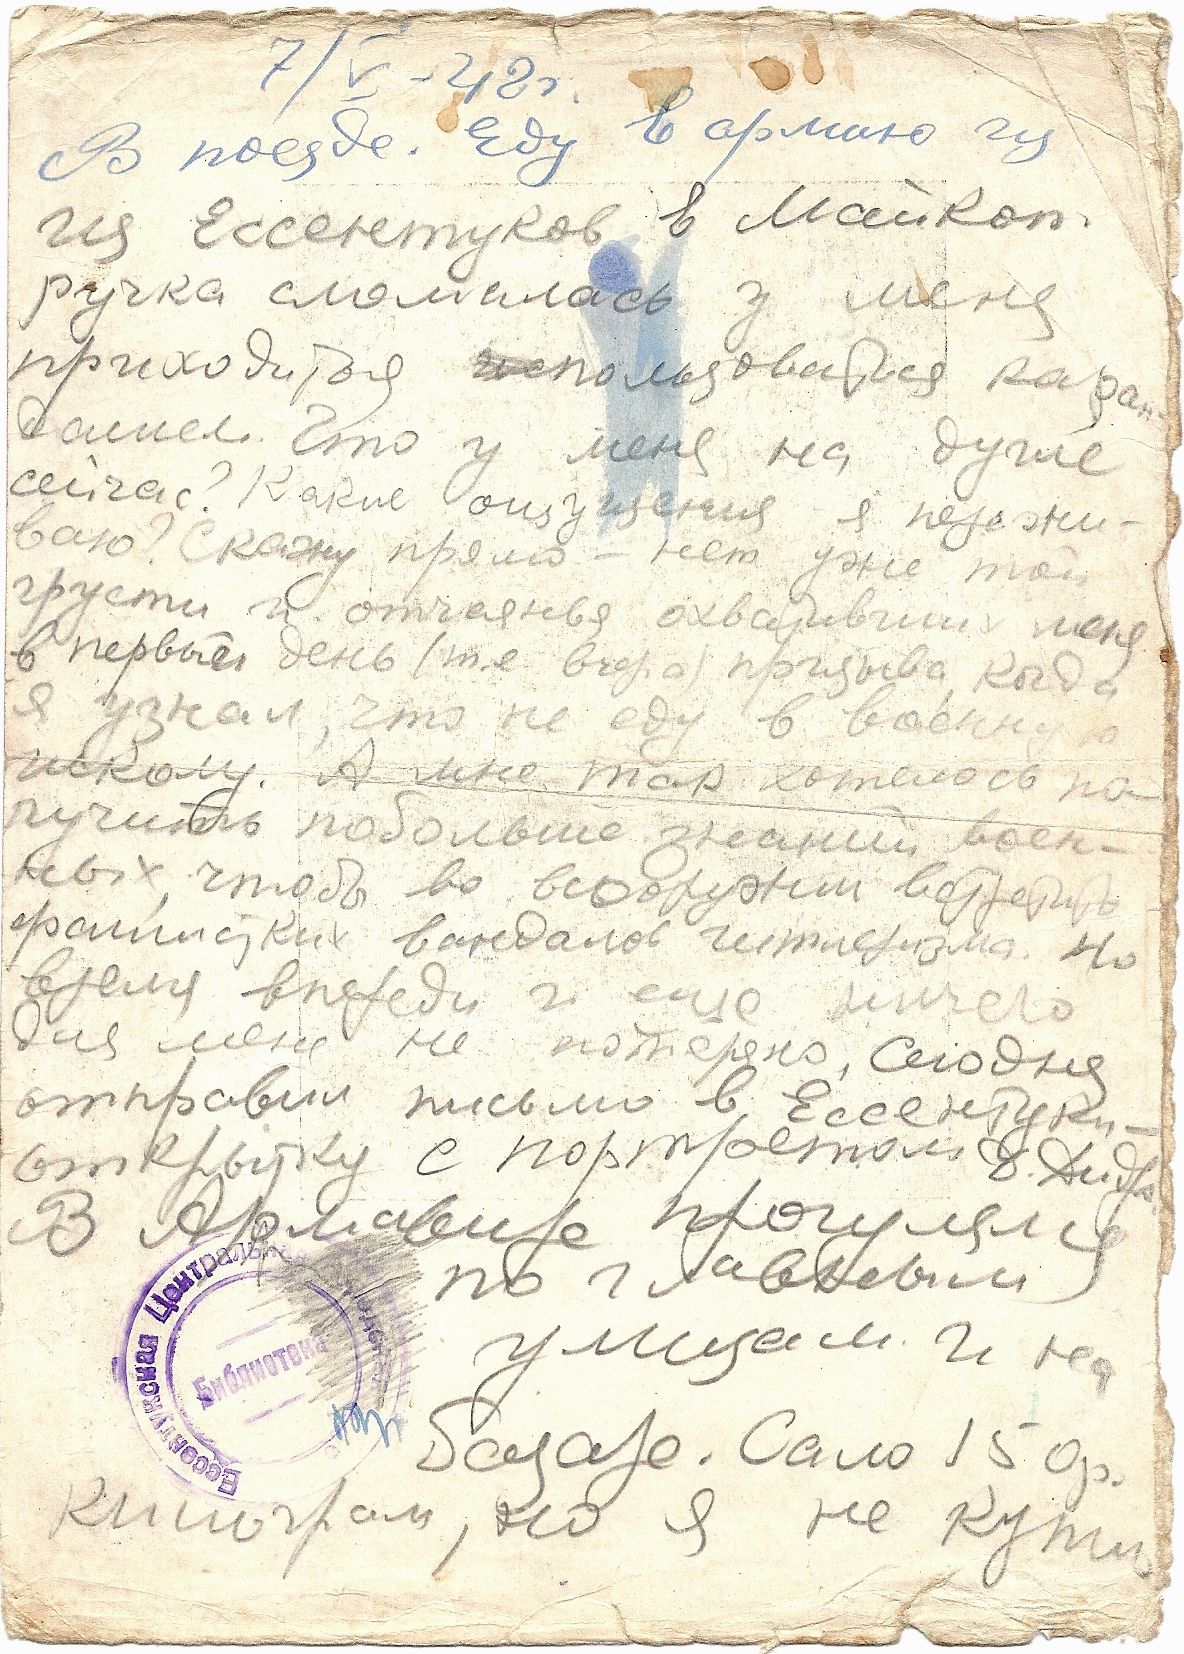 7/V-42г.
В поезде. Еду в армию из
из Ессентуков в Майкоп.
ручка сломилась у меня
приходиться использоваться каран-
дашем. Что у меня на душе
сейчас? Какие ощущения я пережи-
ваю? Скажу прямо - нет уже той
грусти и отчаянья охвативших меня
в первый день (т.е вчера) призыва, когда
я узнал, что не еду в военную
школу. А мне так хотелось по-
лучить побольше знаний воен-
ных, чтобы во всеоружии встретить
фашистких вандалов гитлеризма. Но
время впереди и еще ничего
для меня не потеряно, Сегодня
отправил письмо в Ессентуки -
открытку с портретом
В Армавире прогулялся
по главным
улицам и на
базаре. Сало 150р.
килограм, но я не купил.
Ессентукская Центральная
Библиотека